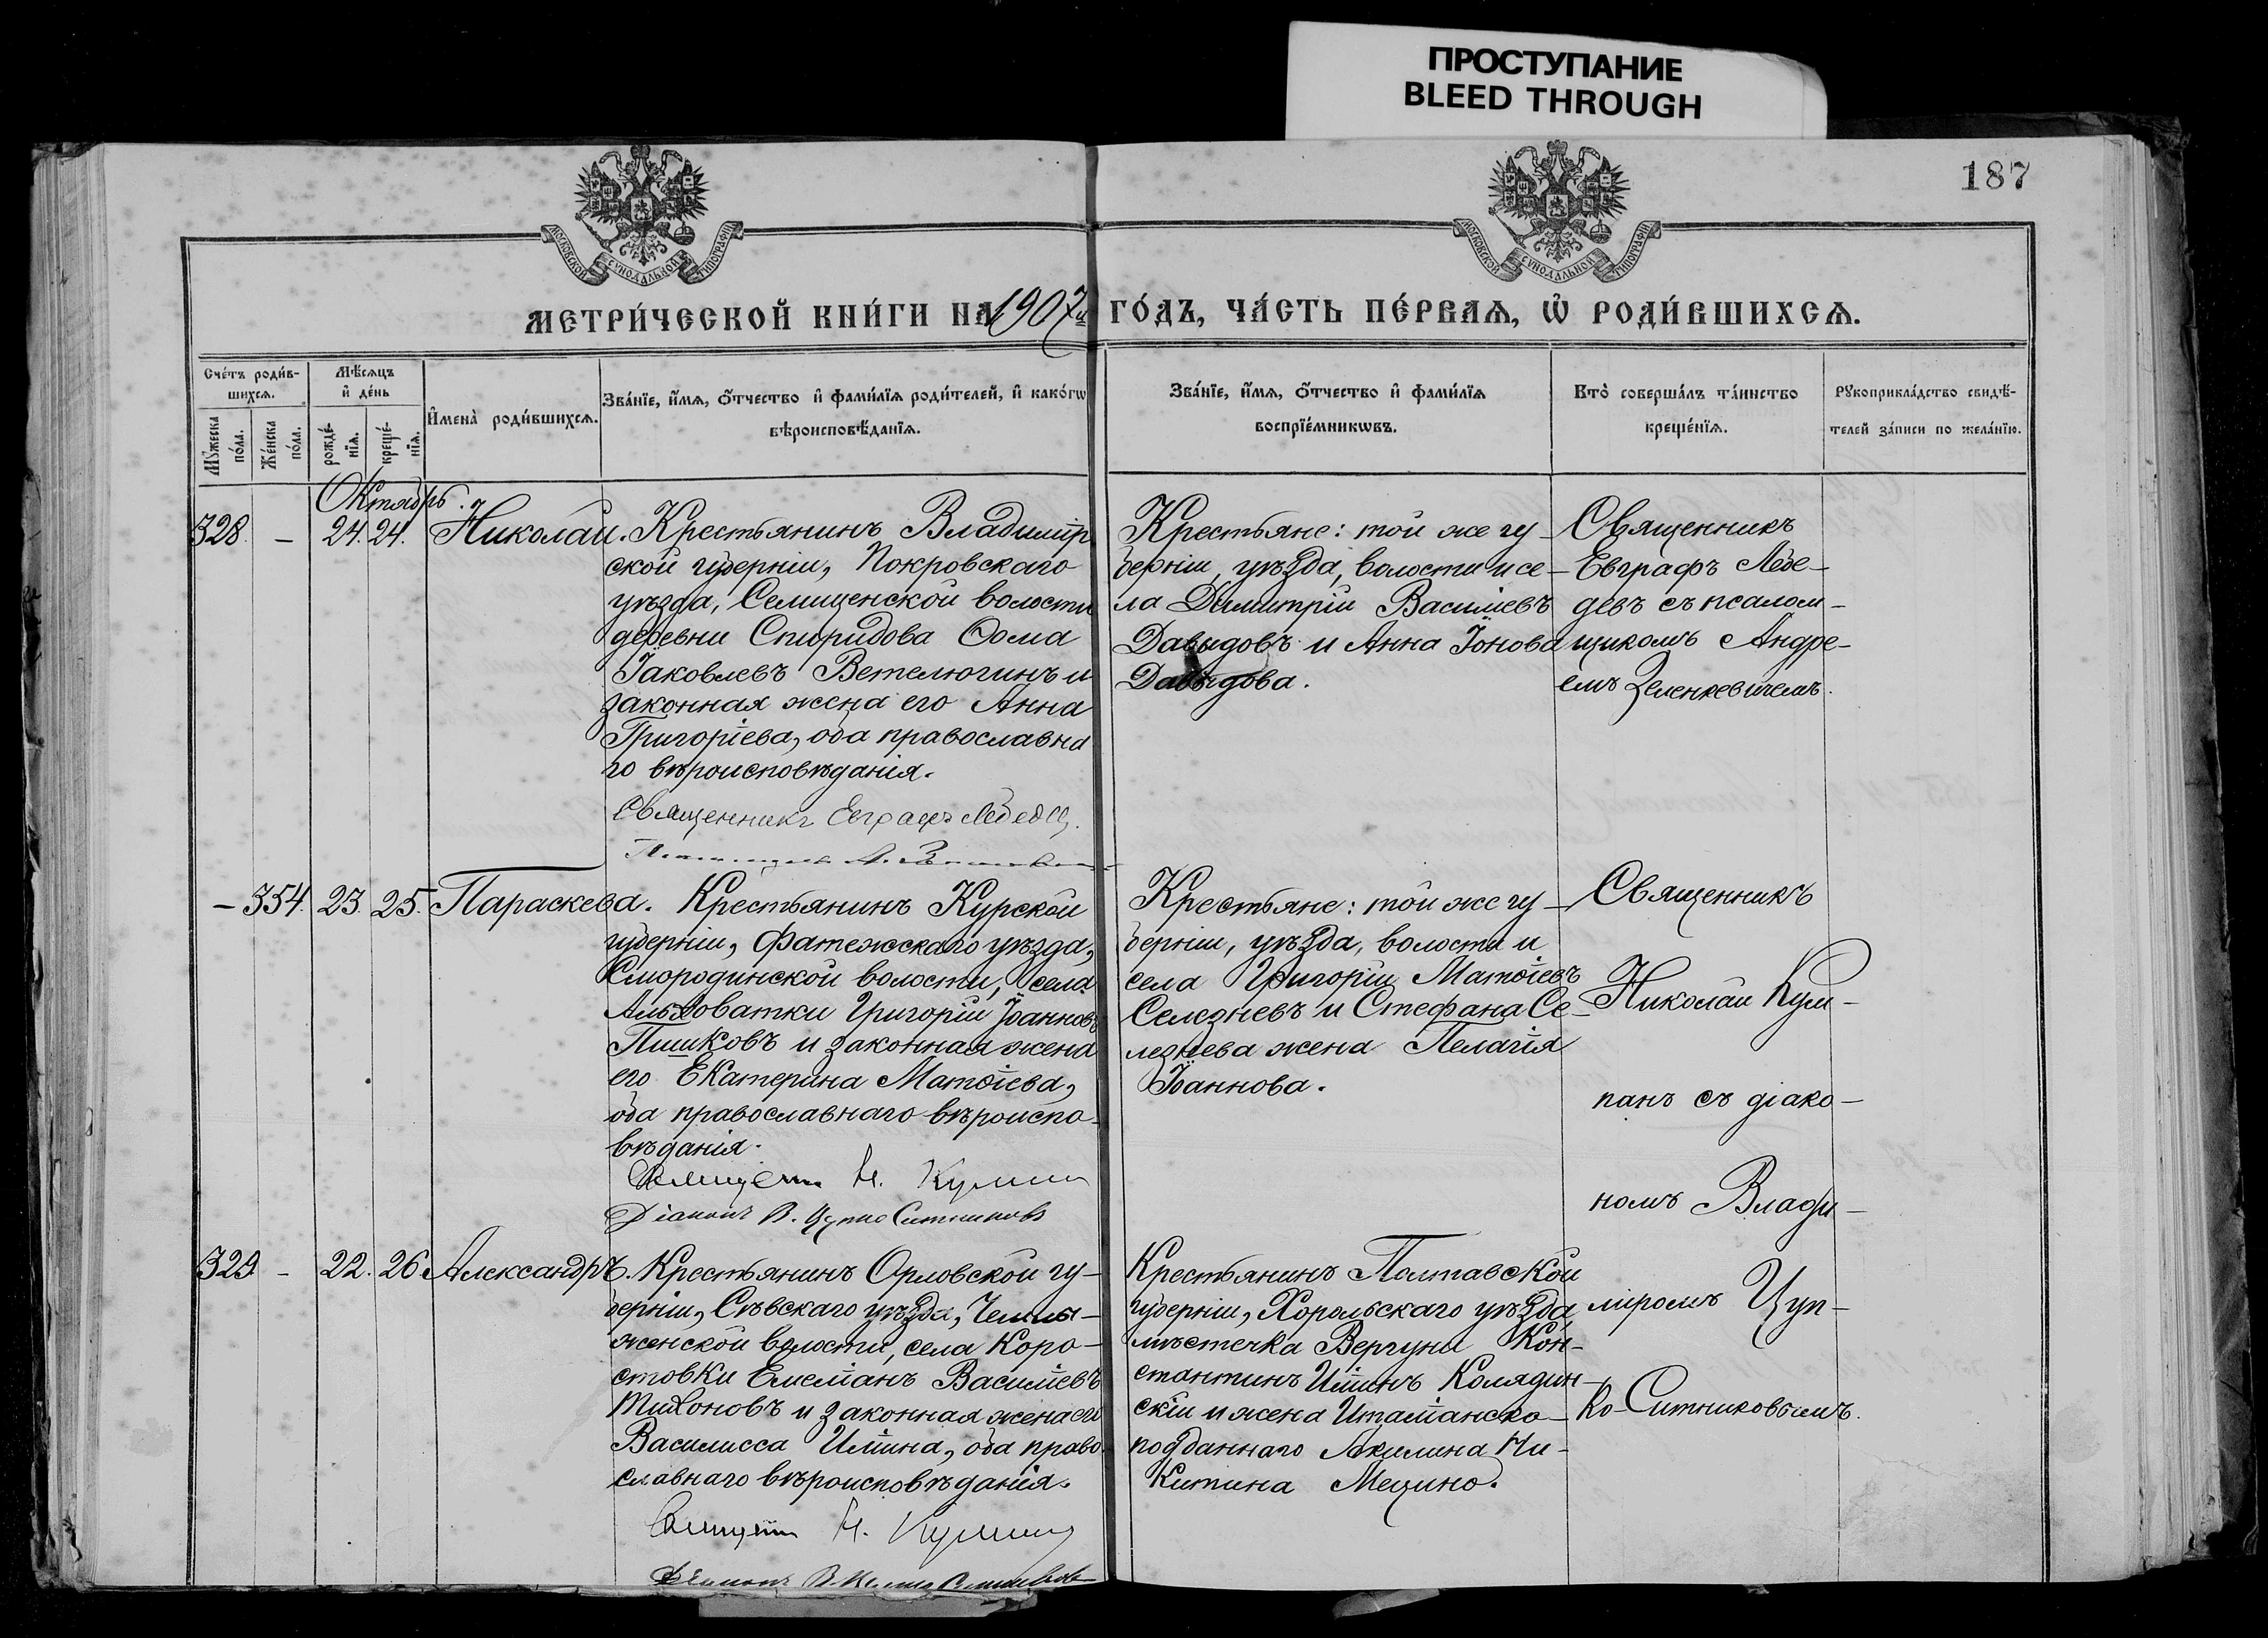 ПРОСТУПАНИЕ
BLEED THROUGH
187
МОСКОВСКОЙ СѴНОДАЛЬНОЙ ТИПОГРАФІИ
МОСКОВСКОЙ СѴНОДАЛЬНОЙ ТИПОГРАФІИ
МЕТРИ́ЧЕСКОЙ КНИ́ГИ НА 1907й ГО́ДЪ, ЧА́СТЬ ПЕ́РВАѦ, Ѡ҆ РОДИ́ВШИХСѦ.
Сче́тъ роди́в-
шихсѧ.
Мꙋ́жеска
по́ла.
Же́нска
по́ла.
Мѣ́сѧцъ
и҆ де́нь
рожде́-
нїѧ.
креще́-
нїѧ.
И҆мена̀ роди́вшихсѧ.
Зва́нїе, и҆́мѧ, ѻ҆́тчество и҆ фами́лїѧ роди́телей, и҆ како́гѡ
вѣроисповѣ́данїѧ.
Зва́нїе, и҆́мѧ, ѻ҆́тчество и҆ фами́лїѧ
воспрїе́мникѡвъ.
Кто̀ соверша́лъ та́инство
креще́нїѧ.
Рꙋкоприкла́дство свидѣ́-
телей за́писи по жела́нїю.
Октябрь.
328. – 24. 24. Николай.
Крестьянинъ Владимір
ской губерніи, Покровскаго
уѣзда, Селищенской волости
деревни Спиридова Ѳома
Іаковлевъ Ветелюгинъ и
законная жена его Анна
Григоріева, оба православна
го вѣроисповѣданія.
Священникъ Евграфъ Лебедев.
Крестьяне: той же гу-
берніи, уѣзда, волости и се-
ла Димитрій Василіевъ
Давыдовъ и Анна Іонова
Давыдова.
Священникъ
Евграфъ Лебе-
девъ съ псалом-
щикомъ Андре-
емъ Зеленкевичемъ.
– 354. 23. 25. Параскева.
Крестьянинъ Курской
губерніи, Фатежскаго уѣзда,
Смородинской волости, села
Альховатки Григорій Іоанновъ
Пшиковъ и законная жена
его Екатерина Матѳіева,
оба православнаго вѣроиспо-
вѣданія.
Н.
Діаконъ В. Цупко Ситниковъ
Крестьяне: той же гу-
берніи, уѣзда, волости и
села Григорій Матѳіевъ
Селезневъ и Стефана Се-
лезнева жена Пелагія
Іоаннова.
Священникъ
Николай Кул-
панъ съ діако-
номъ Влади-
міромъ Цуп-
ко-Ситниковымъ.
329. – 22. 26. Александръ.
Крестьянинъ Орловской гу-
берніи, Сѣвскаго уѣзда, Чемлы-
женской волости, села Коро-
стовки Емеліанъ Василіевъ
Тихоновъ и законная жена его
Василисса Иліина, оба право-
славнаго вѣроисповѣданія.
Н.
Крестьянинъ Полтавской
губерніи, Хорольскаго уѣзда,
мѣстечка Вергуны Кон-
стантинъ Иліинъ Колядин-
скій и жена Италіанско-
подданнаго Акилина Ни-
китина Мецино.